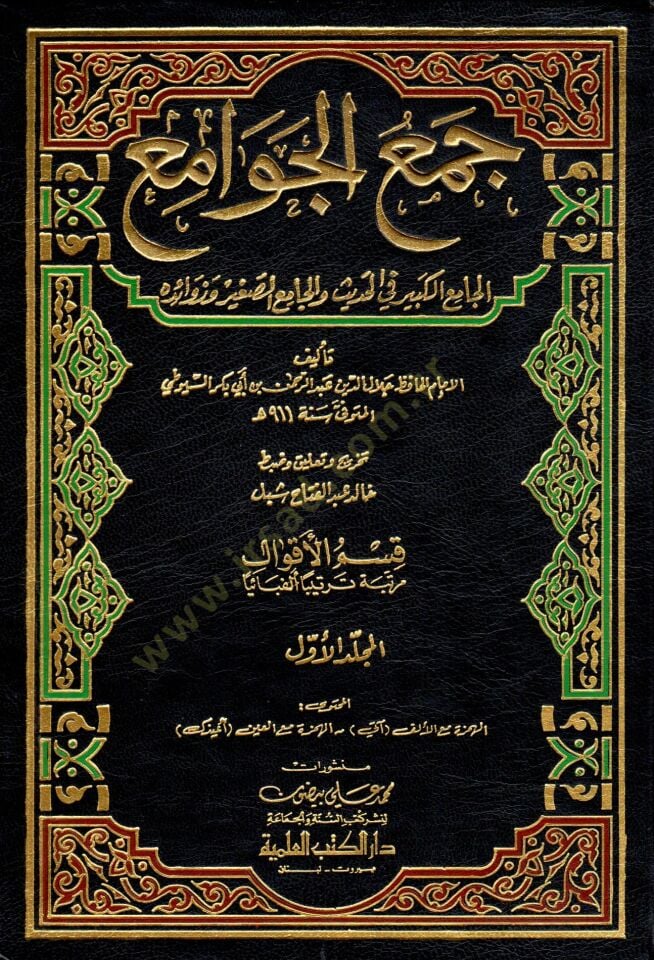 جَمْعُ الجَوَامِع
الجامع الكبير في الحديث والجامع الصغير وزوائده
تأليف
الإمام الحافظ جلال الدين عبد الرحمن بن أبي بكر السيوطي
المتوفى سنة ٩١١ هـ
تخريج وتعليق وضبط
خالد عبد الفتاح شبل
قِسْمُ الأقوال
مرتبة ترتيبا ألفبائيا
المجلد الأوّل
المحتوى:
الهمزة مع الألف (آتي) - الهمزة مع العين (أعيذك)
منشورات
محمد علي بيضون
لنشر كتب السنة والجماعة
دار الكتب العلمية
بيروت - لبنان